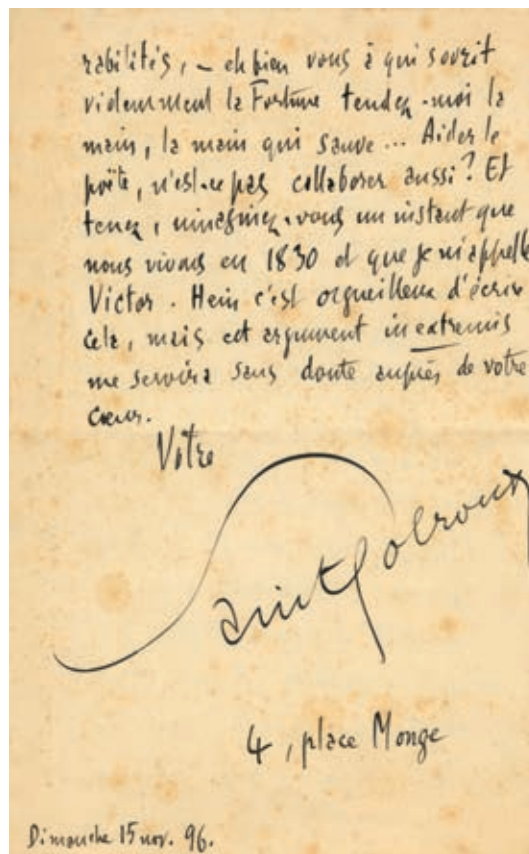 rabilités, – eh bien vous à qui sourit
violemment la Fortune tendez-moi la
main, la main qui sauve... Aider le
poëte, n'est-ce pas collaborer aussi? Et
tenez, imaginez-vous un instant que
nous vivons en 1830 et que je m'appelle
Victor. Hein c'est orgueilleux d'écrire
cela, mais cet argument in extremis
me servira sans doute auprès de votre
cœur.
Vôtre
Saint-Pol-Roux
4, place Monge
Dimanche 15 nov. 96.